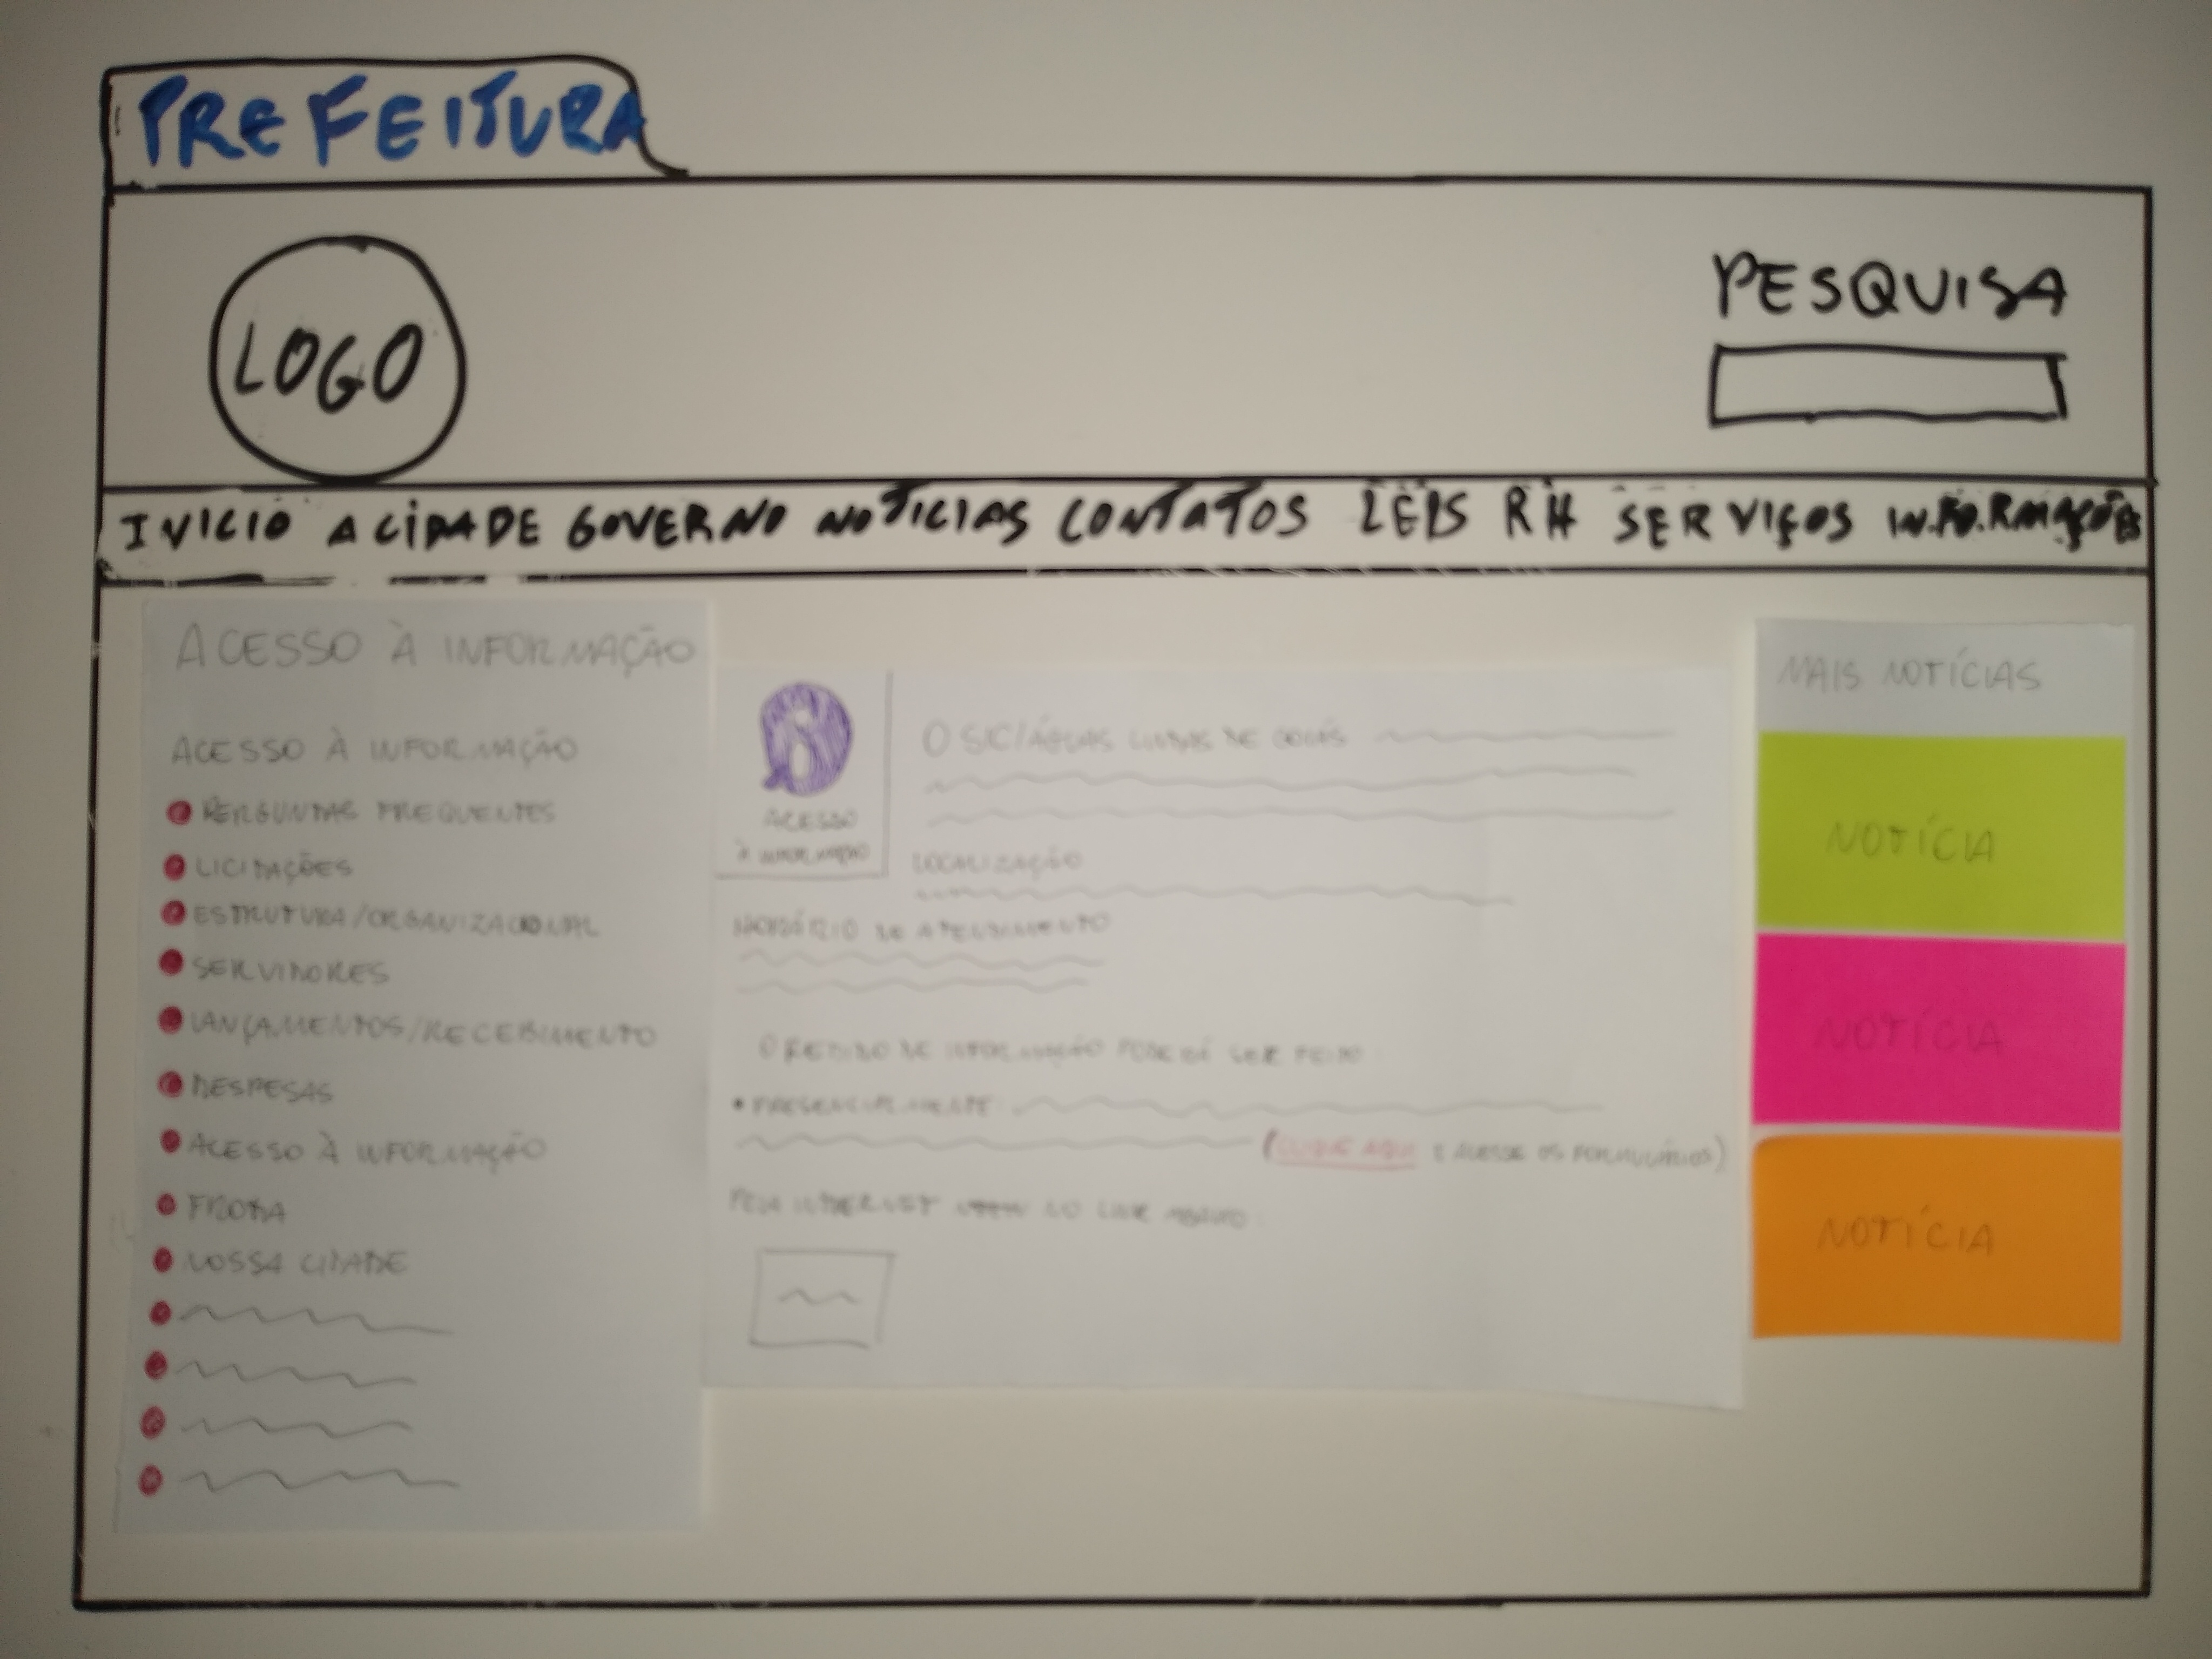 PREFEITURA
LOGO
PESQUISA
INICIO A CIDADE GOVERNO NOTICIAS CONTATOS LEIS RH SERVIÇOS INFORMAÇÕES
ACESSO À INFORMAÇÃO
ACESSO À INFORMAÇÃO
PERGUNTAS FREQUENTES
LICITAÇÕES
ESTRUTURA/ORGANIZACIONAL
SERVIDORES
LANÇAMENTOS/RECEBIMENTO
DESPESAS
ACESSO À INFORMAÇÃO
FROTA
NOSSA CIDADE
ACESSO
À INFORMAÇÃO
O SIC/ÁGUAS LINDAS DE GOIÁS
LOCALIZAÇÃO
HORÁRIO DE ATENDIMENTO
O PEDIDO DE INFORMAÇÃO PODERÁ SER FEITO
• PRESENCIALMENTE
(CLIQUE AQUI E ACESSE OS FORMULÁRIOS)
PELA INTERNET NO LINK ABAIXO
MAIS NOTÍCIAS
NOTÍCIA
NOTÍCIA
NOTÍCIA